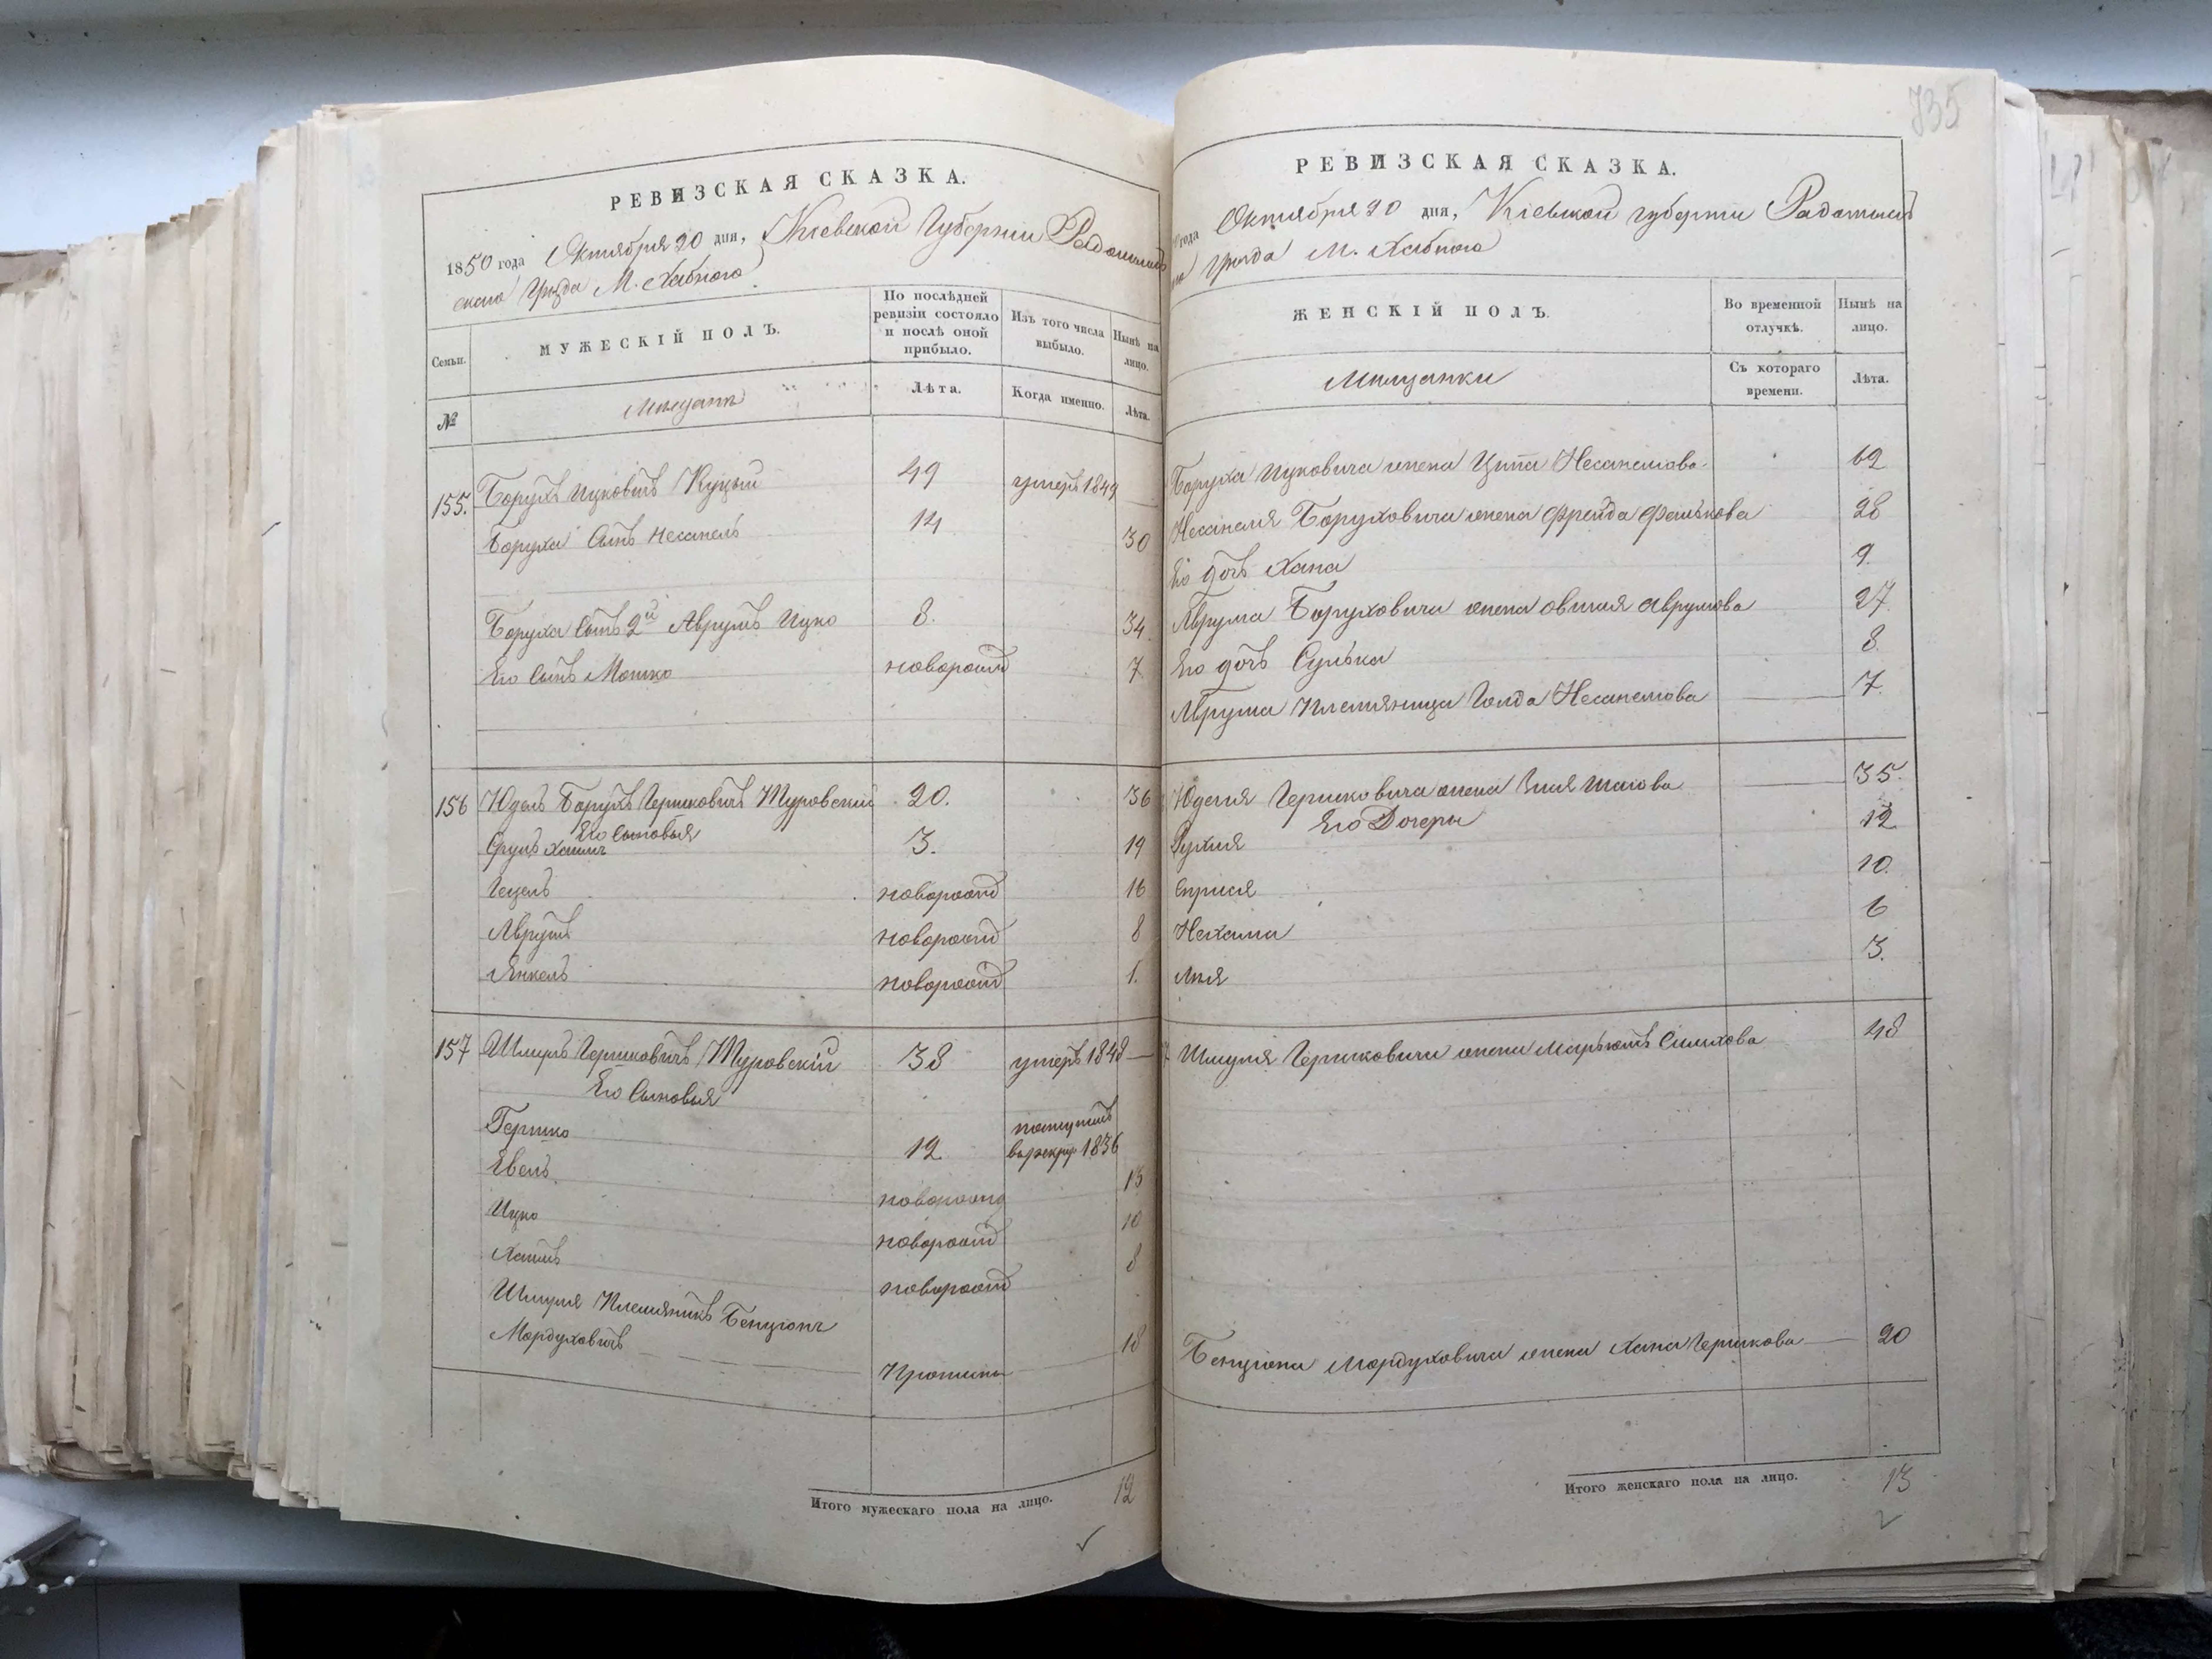 735
РЕВИЗСКАЯ СКАЗКА.
1850 года Октября 20 дня, Кіевской Губерніи Радомысль
скаго Уѣзда М. Хабного
Семьи.
МУЖЕСКІЙ ПОЛЪ.
По послѣдней ревизіи состояло и послѣ оной прибыло.
Изъ того числа выбыло.
Нынѣ на лицо.
№
Мещане
Лѣта.
Когда именно.
Лѣта.
155. Борухъ Ицковичъ Куцый 49 умеръ 1849
Боруха Сынъ Несанель 14 30
Боруха Сынъ 2й Аврумъ Ицко 8. 34
Его Сынъ Мошко новорожд 7
156 Юдель Борухъ Гершковичъ Туровскій 20. 36
Его Сыновья
Сруль Хаимъ 3. 19
Гецель новорожд 16
Аврумъ новорожд 8
Янкель новорожд 1.
157 Шмуль Гершковичъ Туровскій 38 умеръ 1848
Его Сыновья
Гершко 12 поступилъ в рекрут 1836
Евель новорожд 13
Ицко новорожд 10
Хаимъ новорожд 8
Шмуля Племянникъ Бенціонъ
Мордуховичъ 18
Итого мужескаго пола на лицо. 12
РЕВИЗСКАЯ СКАЗКА.
года Октября 20 дня, Кіевской губерніи Радомысль
Уѣзда М. Хабного
ЖЕНСКІЙ ПОЛЪ.
Во временной отлучкѣ.
Нынѣ на лицо.
Мещанки
Съ котораго времени.
Лѣта.
Боруха Ицковича жена Ципа Несанелиова 62
Несанеля Боруховича жена Фрейда Фалькова 28
Его дочь Хана 9.
Аврума Боруховича жена Аврумова 27
Его дочь Сулька 8.
Аврума Племяница Голда Несанелиова 7.
Юделя Гершковича жена Шаіова 35.
Его Дочеры
Рухля 12
10.
Нехама 6
Лия 3.
Шмуля Гершковича жена Марьямъ Симхова 48
Бенціона Мордуховича жена Хана Гершкова 20
Итого женскаго пола на лицо. 13